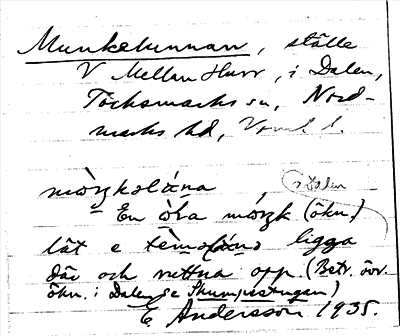 Munkelunnan, ställe
V Mellan Hurr, i Dalen,
Töcksmarks sn, Nord-
marks hd, Vrml l.
i Dalen
En òka (ökn.)
låt e ligga
där och ruttna opp (Betr. övr.
ökn. i Dalen se Skumpestugan)
E Andersson 1935.